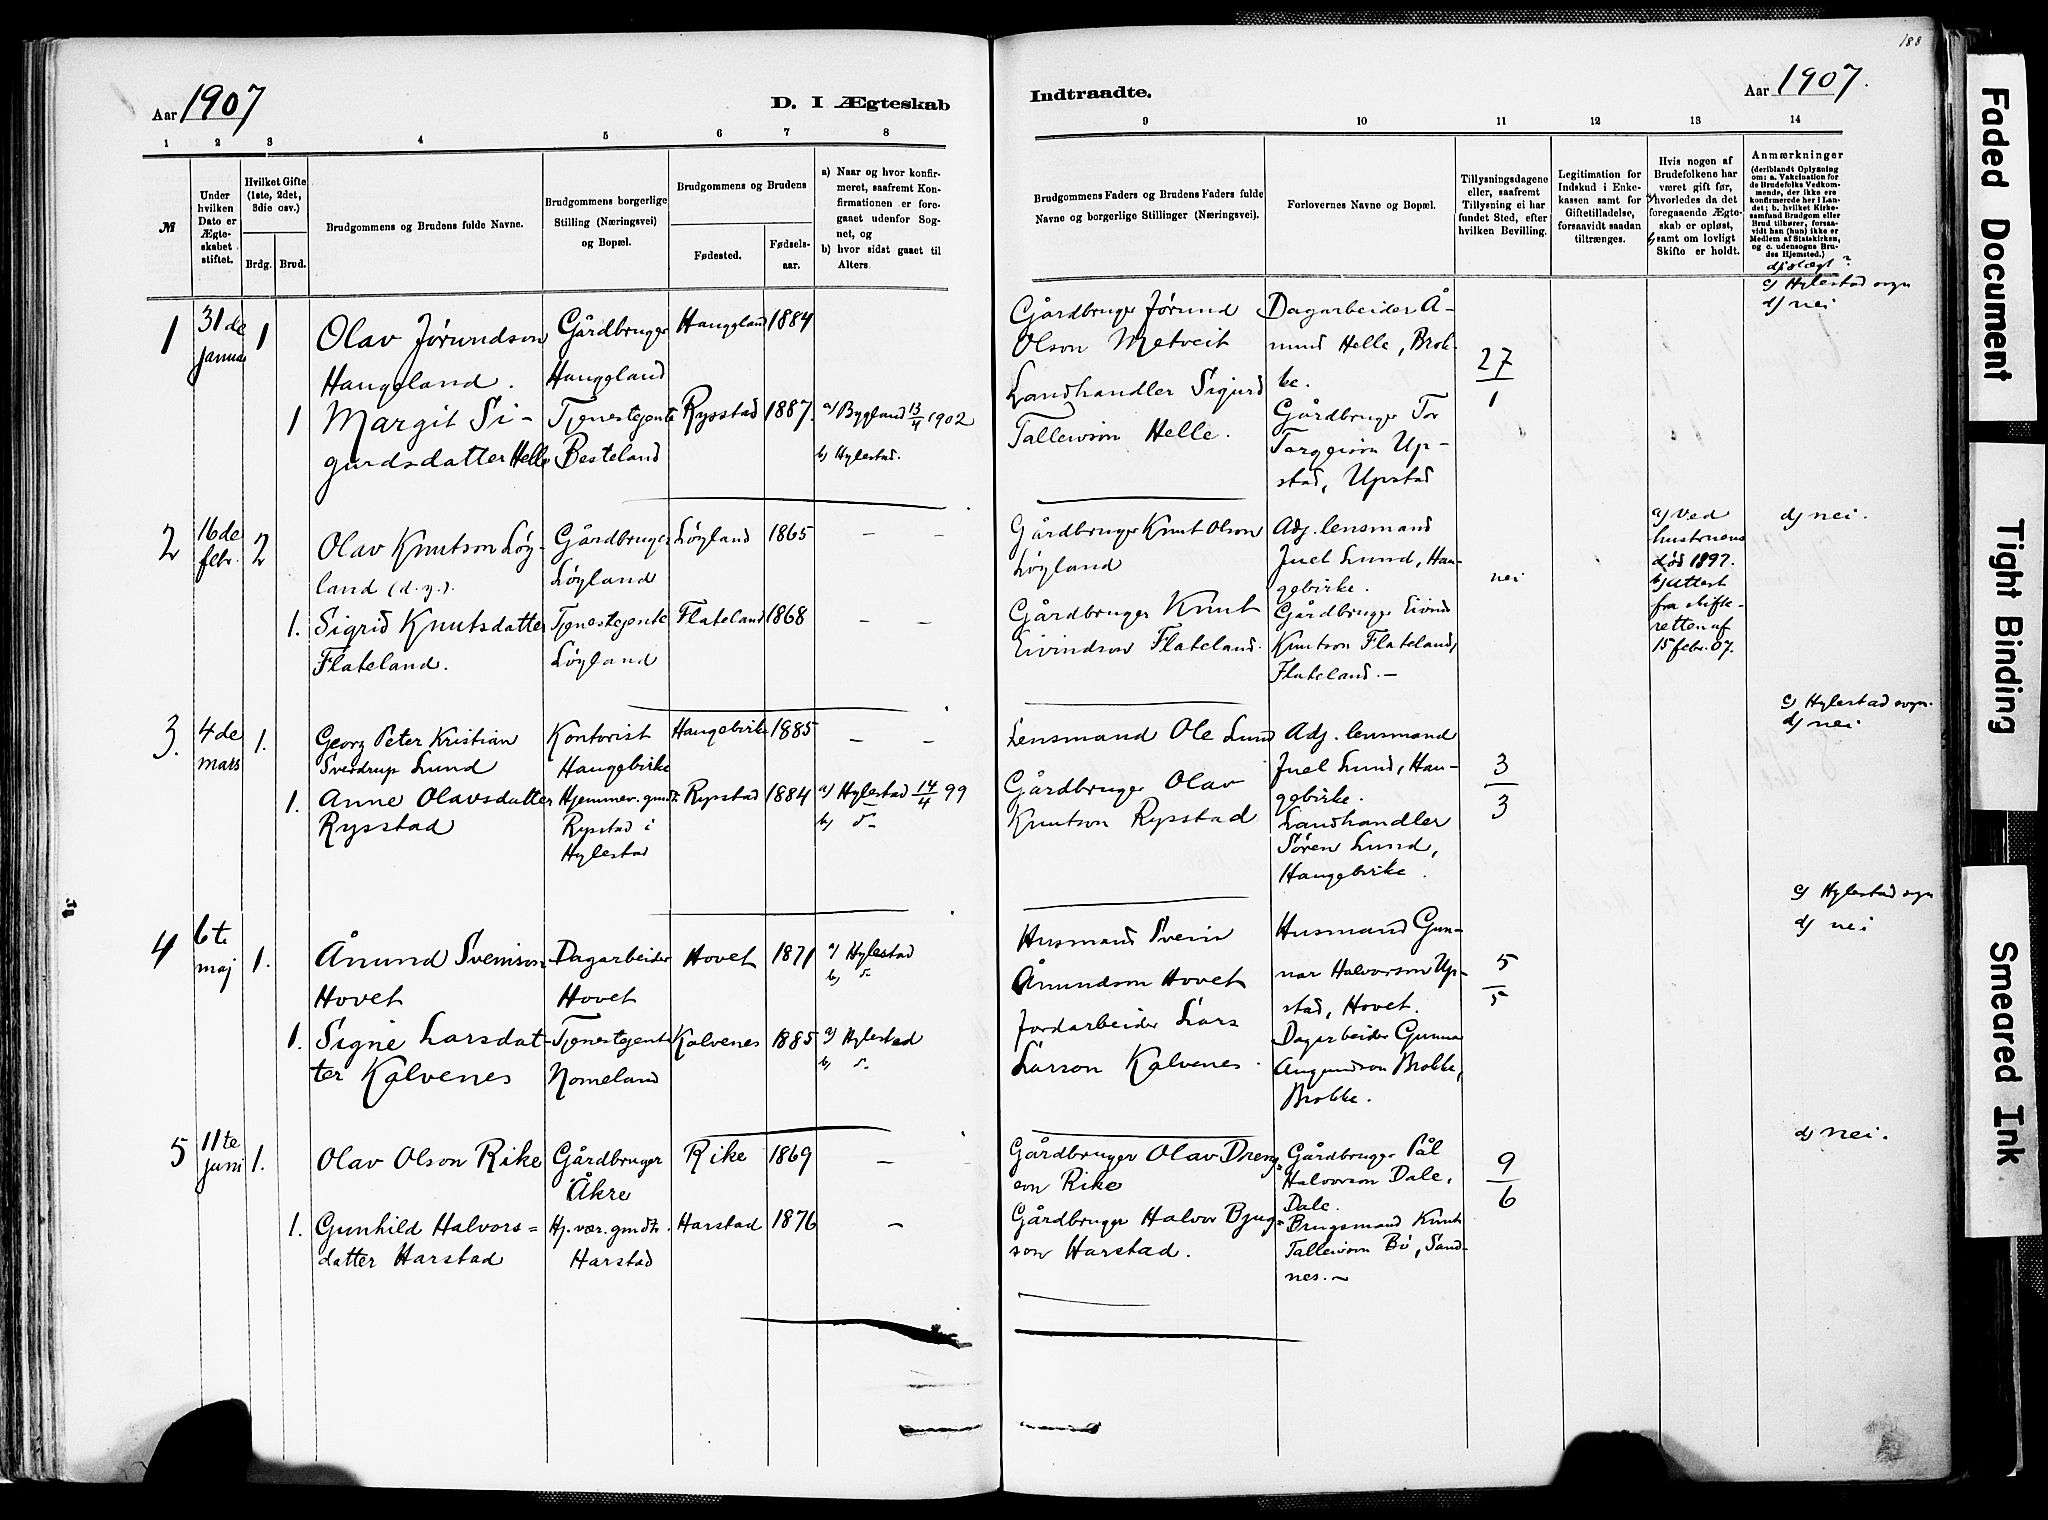 188
Aar 1907
D. I Ægteskab
Indtraadte.
Aar 1907.
1 2 3 4 5 6 7 8
9 10 11 12 13 14
№
Under hvilken Dato er Ægteskabet stiftet.
Hvilket Gifte (1ste, 2det, 3die osv.)
Brdg. Brud.
Brudgommens og Brudens fulde Navne.
Brudgommens borgerlige Stilling (Næringsvei) og Bopæl.
Brudgommens og Brudens
Fødested.
Fødselsaar.
a) Naar og hvor konfirmeret, saafremt Konfirmationen er foregaaet udenfor Sognet, og
b) hvor sidst gaaet til Alters.
Brudgommens Faders og Brudens Faders fulde Navne og borgerlige Stillinger (Næringsvei).
Forlovernes Navne og Bopæl.
Tillysningsdagene eller, saafremt Tillysning ei har fundet Sted, efter hvilken Bevilling.
Legitimation for Indskud i Enkekassen samt for Giftetilladelse, forsaavidt saadan tiltrænges.
Hvis nogen af Brudefolkene har været gift før, a) hvorledes da det foregaaende Ægteskab er opløst, b) samt om lovligt Skifte er holdt.
Anmærkninger
(deriblandt Oplysning om: a. Vakcination for de Brudefolks Vedkommende, der ikke ere konfirmerede her i Landet; b. hvilket Kirkesamfund Brudgom eller Brud tilhører, forsaavidt han (hun) ikke er Medlem af Statskirken, og c. udensogns Brudes Hjemsted.)
d) slægt?
1
31de
1
Olav Jørundson
Haugeland.
Gårdbruger
Haugeland
Haugeland
1884
Gårdbruger Jørund
Olson Metveit
Dagarbeider Å-
mund Helle, Brok-
ke.
27
1
c) Hylestad sogn
d) nei
1
Margit Si-
gurdsdatter Helle
Tjenestejente
Besteland
Rysstad
1887.
a) Bygland 13/4 1902
b) Hylestad.
Landhandler Sigurd
Tallewson Helle.
Gårdbruger Tor
Torgeirson Up-
stad, Upstad
2
16de
febr.
2
Olav Knutson Løy-
land (d.y.).
Gårdbruger
Løyland
Løyland
1865
– –
Gårdbruger Knut Olson
Løyland
Adj. lensmand
Juel Lund, Hau-
gebirke.
nei
a) Ved
hustruens
død 1897.
b) attest
fra skifte-
retten af
15 febr. 07.
d) nei.
1.
Sigrid Knutsdatter
Flateland.
Tjenestejente
Løyland
Flateland
1868
– –
Gårdbruger Knut
Eivindson Flateland.
Gårdbruger Eivind
Knutson Flateland,
Flateland. –
3.
4de
mars
1.
Georg Peter Kristian
Sverdrup Lund
Kontorist
Haugebirke
Haugebirke
1885
– –
Lensmand Ole Lund
Adj. lensmand
Juel Lund, Hau-
gebirke.
3
3
c) Hylestad sogn.
d) nei
1.
Anne Olavsdatter
Rysstad
Hjemmev. gmdt.
Rysstad i
Hylestad
Rysstad
1884
a) Hylestad 14/4 99
b) d–
Gårdbruger Olav
Knutson Rysstad
Landhandler
Søren Lund,
Haugebirke.
4
6te
maj
1.
Ånund Sveinson
Hovet
Dagarbeider
Hovet
Hovet
1871
a) Hylestad
b) d–
Husmand Svein
Ånundson Hovet
Husmand Gun-
nar Halvorson Up-
stad, Hovet.
5
5
c) Hylestad sogn
d) nei
1.
Signe Larsdat-
ter Kalvenes
Tjenestejente
Nomeland
Kalvenes
1885
a) Hylestad
b) d–
Jordarbeider Lars
Larson Kalvenes.
Dagarbeider Gunnar
Augundson Brokke,
Brokke.
5
11te
juni
1.
Olav Olson Rike
Gårdbruger
Åkre
Rike
1869
– –
Gårdbruger Olav Dreng-
son Rike
Gårdbruger Pål
Halvorson Dale,
Dale.
9
6
d) nei.
1.
Gunhild Halvors=
datter Harstad
Hj. vær. gmdt.
Harstad
Harstad
1876
–
Gårdbruger Halvor Bjug=
son Harstad.
Brugsmand Knut
Tallewson Bø, Sand-
nes. –
Faded Document
Tight Binding
Smeared Ink